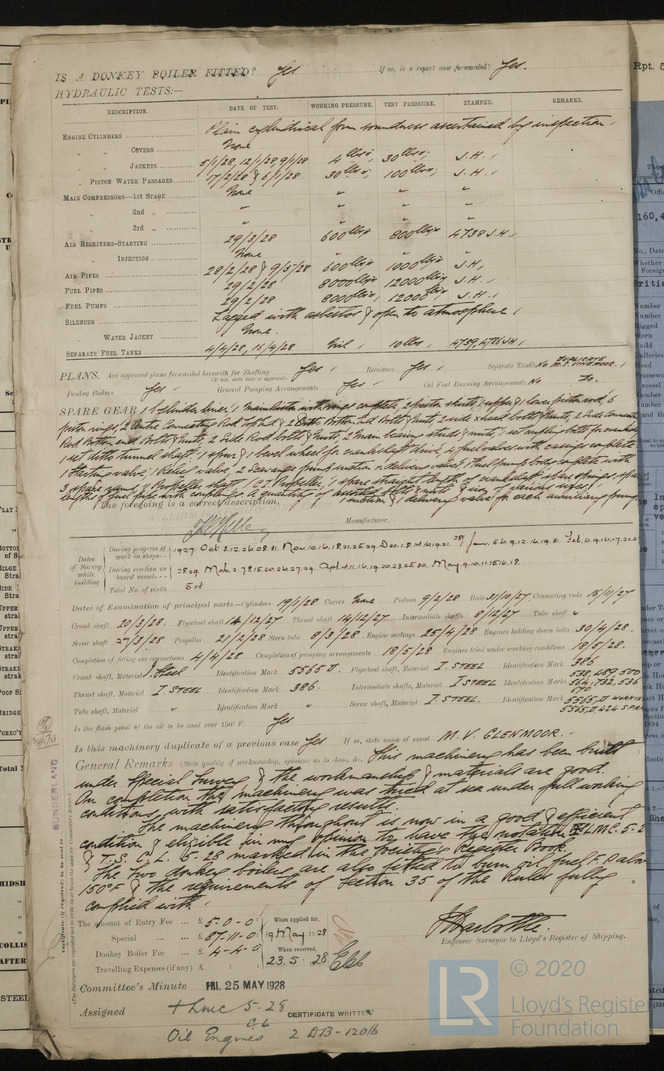 IS A DONKEY BOILER FITTED? Yes If so, is a report now forwarded? Yes.
HYDRAULIC TESTS:—
DESCRIPTION. DATE OF TEST. WORKING PRESSURE. TEST PRESSURE. STAMPED. REMARKS.
ENGINE CYLINDERS Plain cylindrical form soundness ascertained by inspection
" " COVERS None
" " JACKETS 5/1/28, 12/1/28, 9/1/28 4 lbs 30 lbs J.H.
" PISTON WATER PASSAGES 17/2/28 & 6/1/28 30 lbs 100 lbs J.H.
MAIN COMPRESSORS—1st STAGE None " " "
" 2nd " " " " "
" 3rd " " " " "
AIR RECEIVERS—STARTING 29/3/28 600 lbs 800 lbs 4738 J.H.
" INJECTION None
AIR PIPES 28/2/28 & 9/5/28 600 lbs 1000 lbs J.H.
FUEL PIPES 29/2/28 8000 lbs 12000 lbs J.H.
FUEL PUMPS 29/2/28 8000 lbs 12000 lbs J.H.
SILENCER Lagged with asbestos & open to atmosphere
" WATER JACKET None.
SEPARATE FUEL TANKS 4/4/28, 11/4/28 Nil 10 lbs J.H.
PLANS. Are approved plans forwarded herewith for Shafting Yes Receivers Yes Separate Tanks No DUPLICATE M.V. GLENMOOR.
(If not, state date of approval)
Donkey Boilers Yes General Pumping Arrangements Yes Oil Fuel Burning Arrangements No Do.
SPARE GEAR 1 Cylinder liner, 1 Main piston with rings complete, 2 piston skirts, upper & 1 lower piston rod, 6
piston rings, 2 Centre Connecting Rod Top End & 2 Bottom End Bolts & Nuts, 2 side rod bolts & Nuts, 2 Side Connecting
Rod Bottom end Bolts & Nuts, 2 Side Rod bolts & Nuts, 2 Main bearing studs & nuts, 1 set coupling bolts for crankshaft
1 set ditto tunnel shaft, 1 spur & 1 bevel wheel for crankshaft drive, 4 fuel valves with casings complete
1 Starting valve, 1 Relief valve, 2 Scavenge pump suction & delivery valves, 1 fuel pump body complete with
3 spare rams, 2 Propeller shaft, 1 C.I. Propeller, 1 spare straight length of crankshaft
lengths of fuel pipe with couplings & quantity of assorted bolts & nuts & iron of various sizes,
The foregoing is a correct description, 1 suction & delivery valve for each auxiliary pump
Manufacturer.
Dates of Survey while building
During progress of work in shops 1927. Oct. Nov. 10. 16. 18. 21. 25. 29. Dec. 1. 8. 14. 16. 19. 21. 28 Jan. 5. 6. 9. 12. 16. 19. 31. Feb. 6. 9. 16. 17. 21. 27
During erection on board vessel 28. 29. Mar. 2. 7. 8. 15. 20. 26. 27. 29. Apl. 4. 11. 16. 19. 20. 23. 25. 30. May. 9. 10. 11. 15. 16. 18.
Total No. of visits 54
Dates of Examination of principal parts—Cylinders 19/1/28 Covers None Pistons 9/2/28 Rods 31/10/27 Connecting rods 15/11/27
Crank shaft 20/3/28. Flywheel shaft 14/12/27 Thrust shaft 14/12/27 Intermediate shafts 8/12/27 Tube shaft "
Screw shaft 27/3/28 Propeller 21/2/28 Stern tube 8/3/28 Engine seatings 25/4/28 Engines holding down bolts 30/4/28.
Completion of fitting sea connections 4/4/28 Completion of pumping arrangements 18/5/28 Engines tried under working conditions 18/5/28.
Crank shaft, Material I. Steel Identification Mark 5565 J. Flywheel shaft, Material I STEEL Identification Mark 386
Thrust shaft, Material I STEEL Identification Mark 386. Intermediate shafts, Material I STEEL Identification Marks 538, 489, 500 564, 732, 536 570
Tube shaft, Material " Identification Mark " Screw shaft, Material I. STEEL. Identification Mark
Is the flash point of the oil to be used over 150° F. Yes
Is this machinery duplicate of a previous case Yes If so, state name of vessel M.V. GLENMOOR.
General Remarks (State quality of workmanship, opinions as to class, &c. This machinery has been built
under Special Survey & the workmanship & materials are good.
On completion the machinery was tried at sea under full working
conditions, with satisfactory results.
The machinery throughout is now in a good & efficient
condition & eligible in my opinion to have the notation LMC. 5-28
& T. S. C. L. 5-28 marked in the Society's Register Book.
The two donkey boilers are also fitted to burn oil fuel F.P. above
150°F & the requirements of Section 35 of the Rules fully
complied with
The amount of Entry Fee £ 5-0-0 When applied for,
Special £ 87-11-0 19 May 1928
Donkey Boiler Fee £ 4-4-0 When received,
Travelling Expenses (if any) £ 23.5.28
Engineer Surveyor to Lloyd's Register of Shipping.
Committee's Minute FRI. 25 MAY 1928
Assigned + LMC 5-28
C.L. CERTIFICATE WRITTEN
Oil Engines 2 DB-120 lb
SUNDERLAND
LR © 2020
Lloyd's Register
Foundation
Rpt. 5